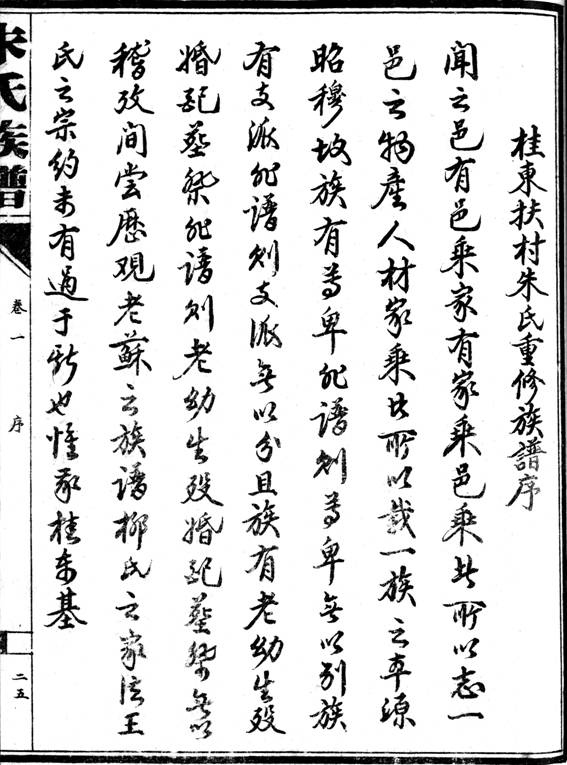 桂東扶村朱氏重修族譜序
聞之邑有邑乘家有家乘邑乘者所以志一
邑之物產人材家乘者所以載一族之本源
昭穆故族有尊卑非譜則尊卑無以別族
有支派非譜則支派無以分且族有老幼生歿
婚配墓塋非譜則老幼生歿婚配墓塋無以
稽攷間嘗歷觀老蘇之族譜柳氏之家法王
氏之宗約未有過于斯也惟我桂東基
朱氏族譜
卷一
序
二五